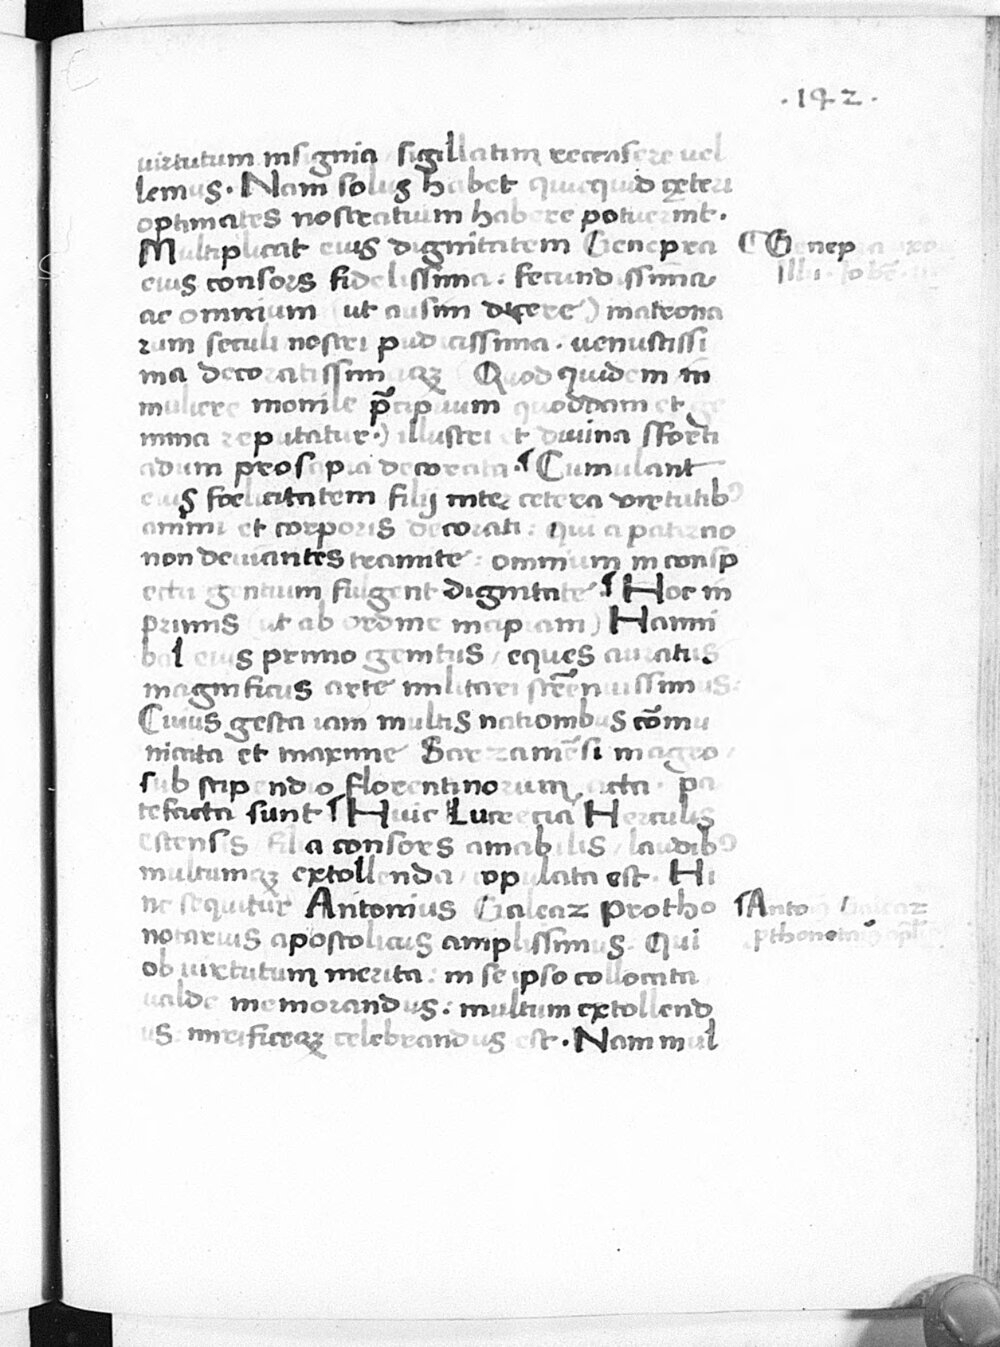 .142.
virtutum insignia sigillatim recensere uel
lemus. Nam solus habet quicquid ceteri
optimates nostratium habere potuerint.
Multiplicat eius dignitatem Genepra
eius consors fidelissima. fecundissima
ac omnium (ut ausim dicere) matrona
rum seculi nostri pudicissima. uenustissi
ma decoratissimaqꝫ Quod quidem in
muliere monile p̄cipuum quoddam et ge
mma reputatur.) illustri et diuina sforti
adum prosapia decorata. ¶ Cumulant
eius foelicitatem filij inter cetera virtutibꝰ
animi et corporis decorati: qui a paterno
non deuiantes tramite: omnium in consp
ectu gentium fulgent dignitate. ¶ Hoc in
primis (ut ab ordine incipiam) Hanni
bal eius primo genitus / eques auratus.
magnificus arte militari strēnuissimus:
Cuius gesta iam multis nationibus cōmu
nicata et maxime Sarzanēsi in agro /
sub stipendio florentinorum, acta. pa
tefacta sunt ¶ Huic Lucrecia Herculis
estensis filia consors amabilis / laudibꝰ
multumqꝫ extollenda / copulata est. Hi
nc sequitur Antonius Galeaz protho
notarius apostolicus amplissimus. Qui
ob uirtutum merita: in se ipso collocata
ualde memorandus: multum extollend
us: mirificeqꝫ celebrandus est. Nam mul
¶ Genepra
Illi. Io be.
¶ Anto Galeaz
pthonotari apl